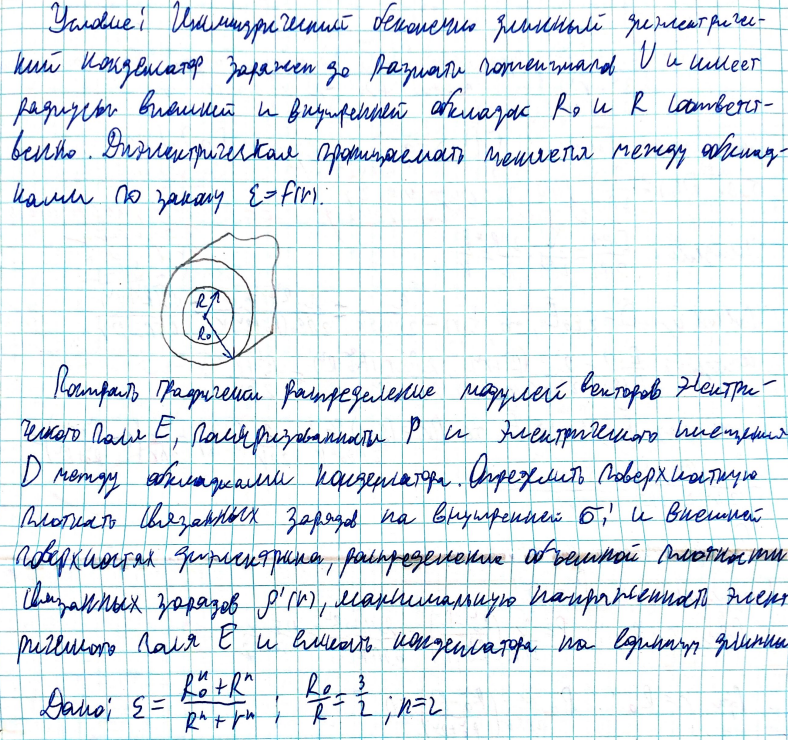 Условие: Цилиндрический бесконечно длинный диэлектричес-
кий конденсатор заряжен до разности потенциалов U и имеет
радиусы внешней и внутренней обкладок R₀ и R соответст-
венно. Диэлектрическая проницаемость меняется между обклад-
ками по закону ε=f(r).
R
R₀
Построить графически распределение модулей векторов электри-
ческого поля E, поляризованности P и электрического смещения
D между обкладками конденсатора. Определить поверхностную
плотность связанных зарядов на внутренней σ₁' и внешней
поверхностях диэлектрика, распределение объемной плотности
связанных зарядов ρ'(r), максимальную напряженность элект
рического поля E и емкость конденсатора на единицу длинны
Дано: ε = (R₀ⁿ+Rⁿ)/(Rⁿ+rⁿ) ; R₀/R = 3/2 ; n=2